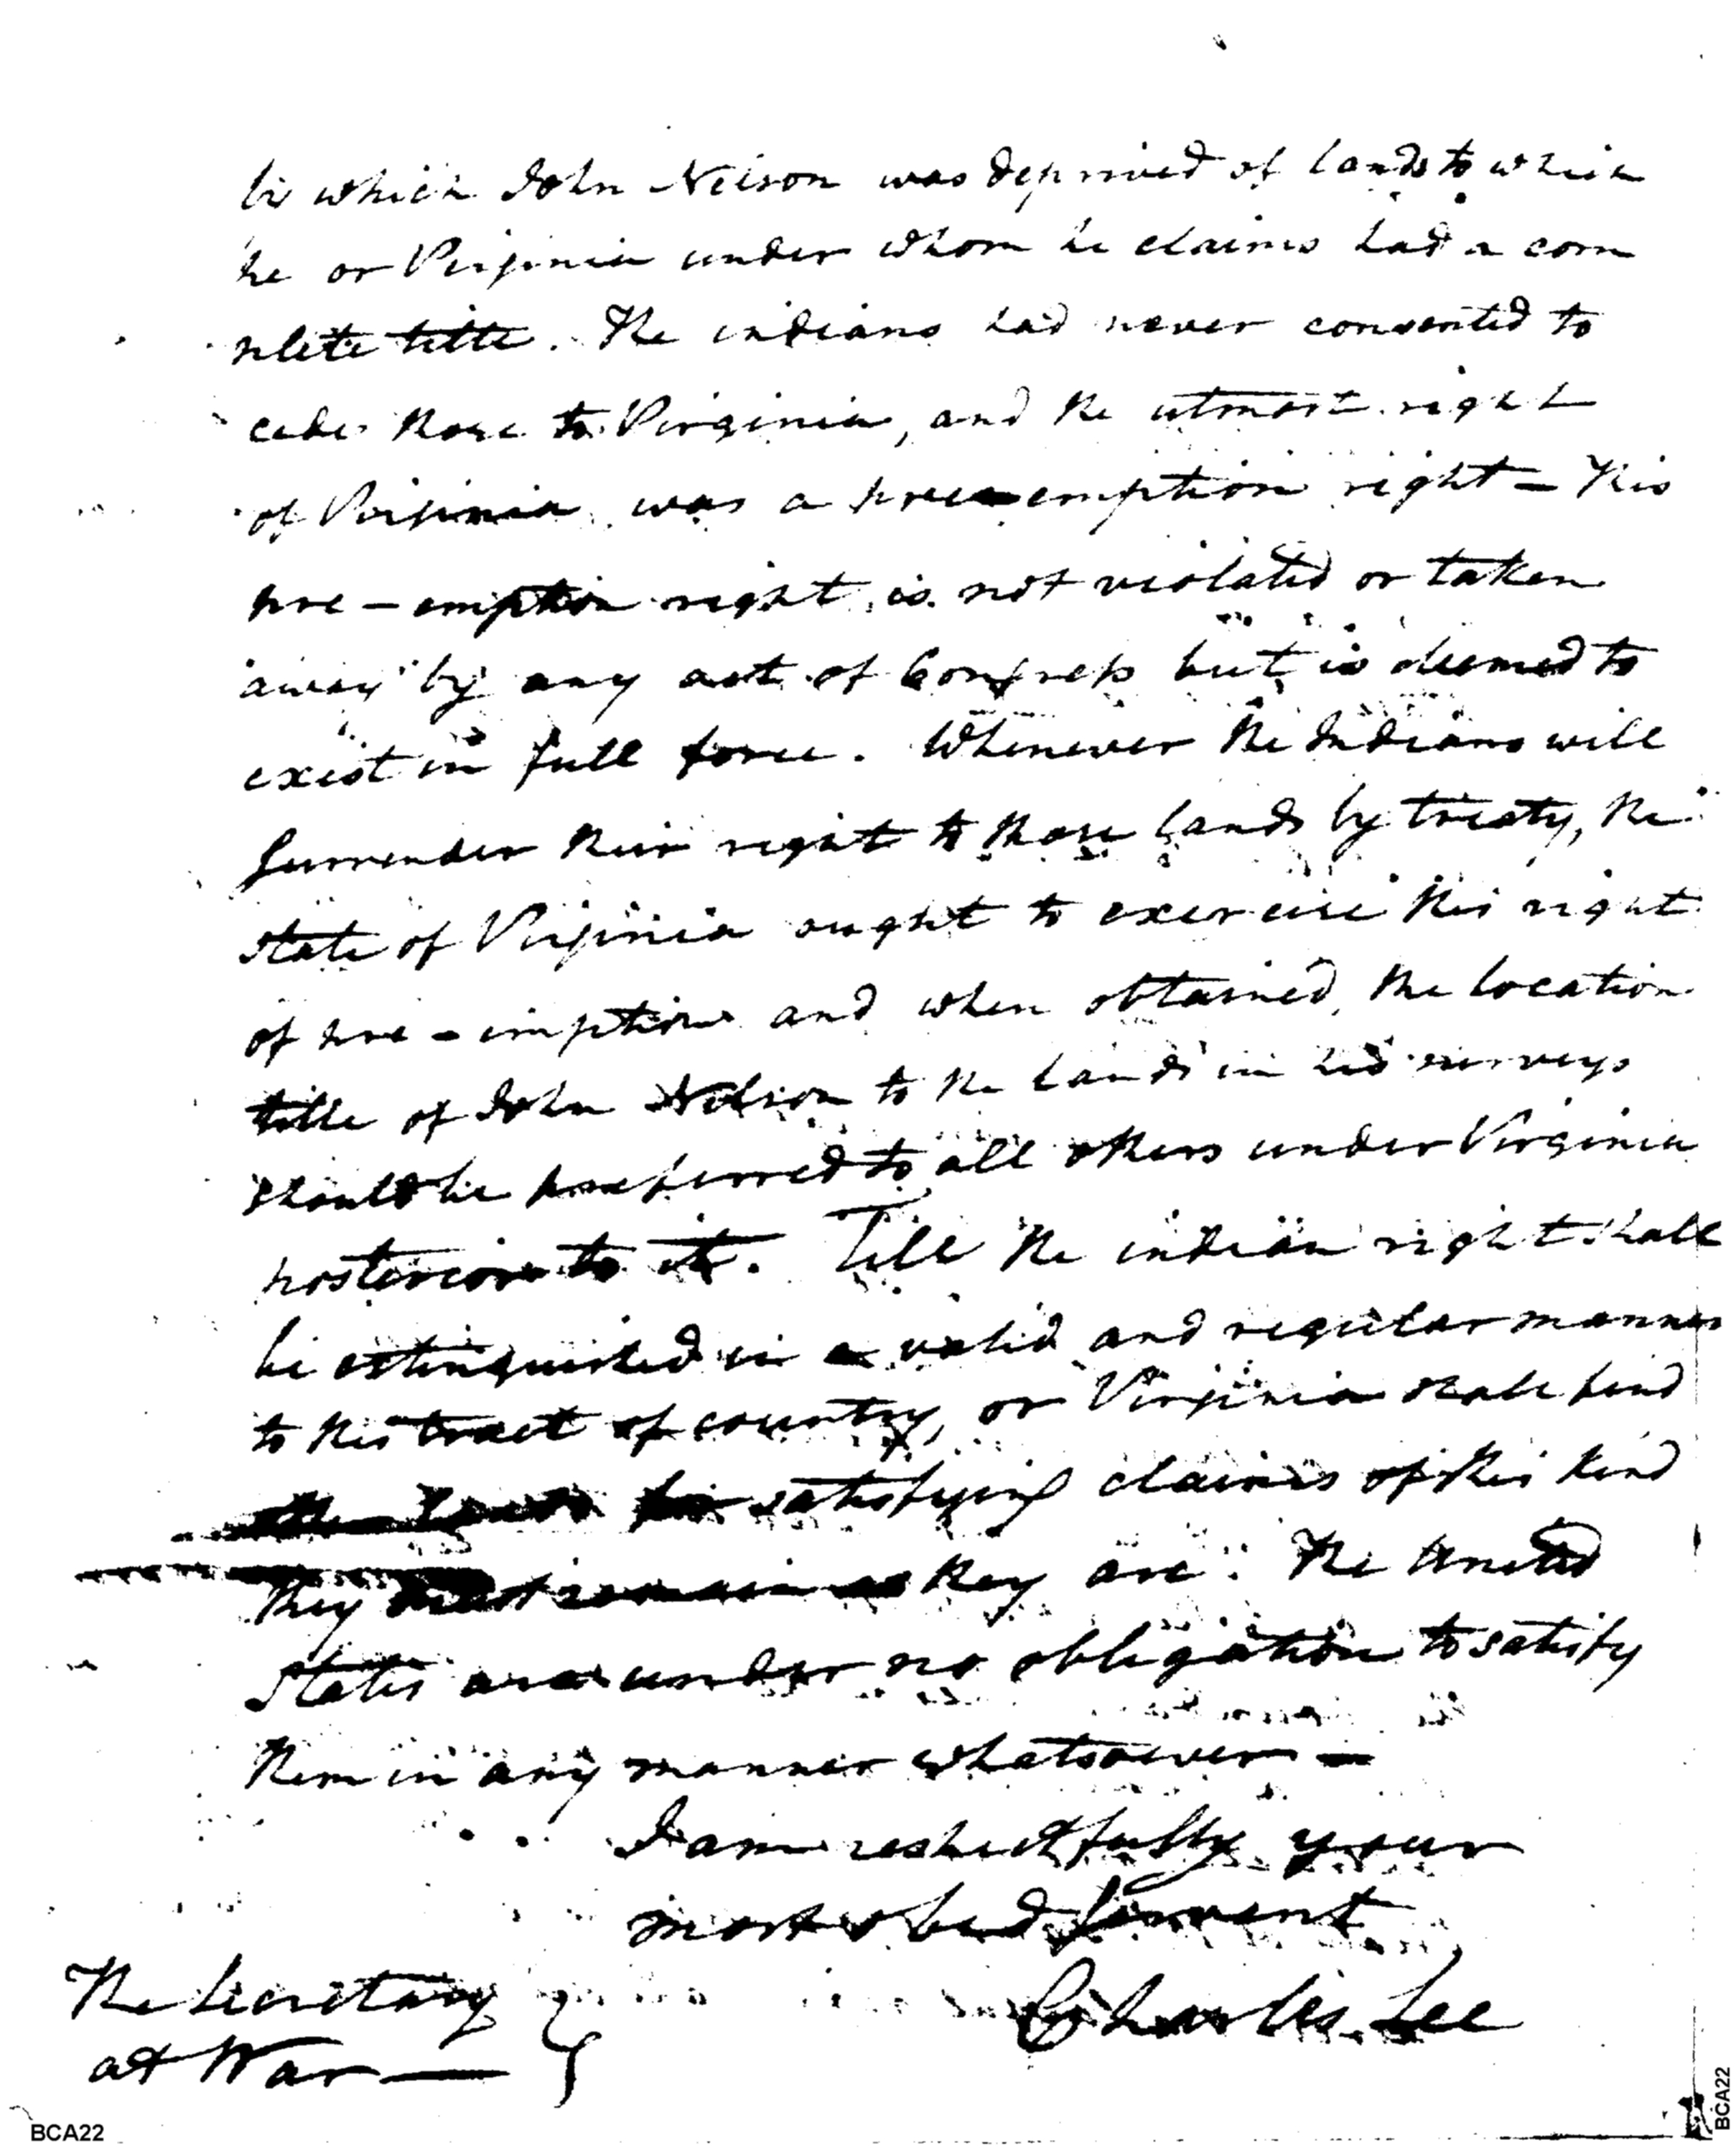 by which John Nelson was deprived of lands to which
he or Virginia under whom he claims had a com
plete title. The indians had never consented to
cede those to Virginia, and the utmost right
of Virginia was a pre-emption right – This
pre-emption right is not violated or taken
away by any act of Congress but is deemed to
exist in full force. Whenever the Indians will
surrender their right to those lands by treaty, the
state of Virginia ought to exercise this right
of pre-emption and when obtained, the location
title of John Nelson to the lands in his surveys
should be preferred to all others under Virginia
posterior to it. Till the indian right shall
be extinguished in a valid and regular manner
to this tract of country, or Virginia shall find
satisfying claims of this kind
they must remain as they are. The United
States are under no obligation to satisfy
them in any manner whatsoever –
I am respectfully your
most obed servant
Charles Lee
The Secretary
at War —
BCA22
BCA22